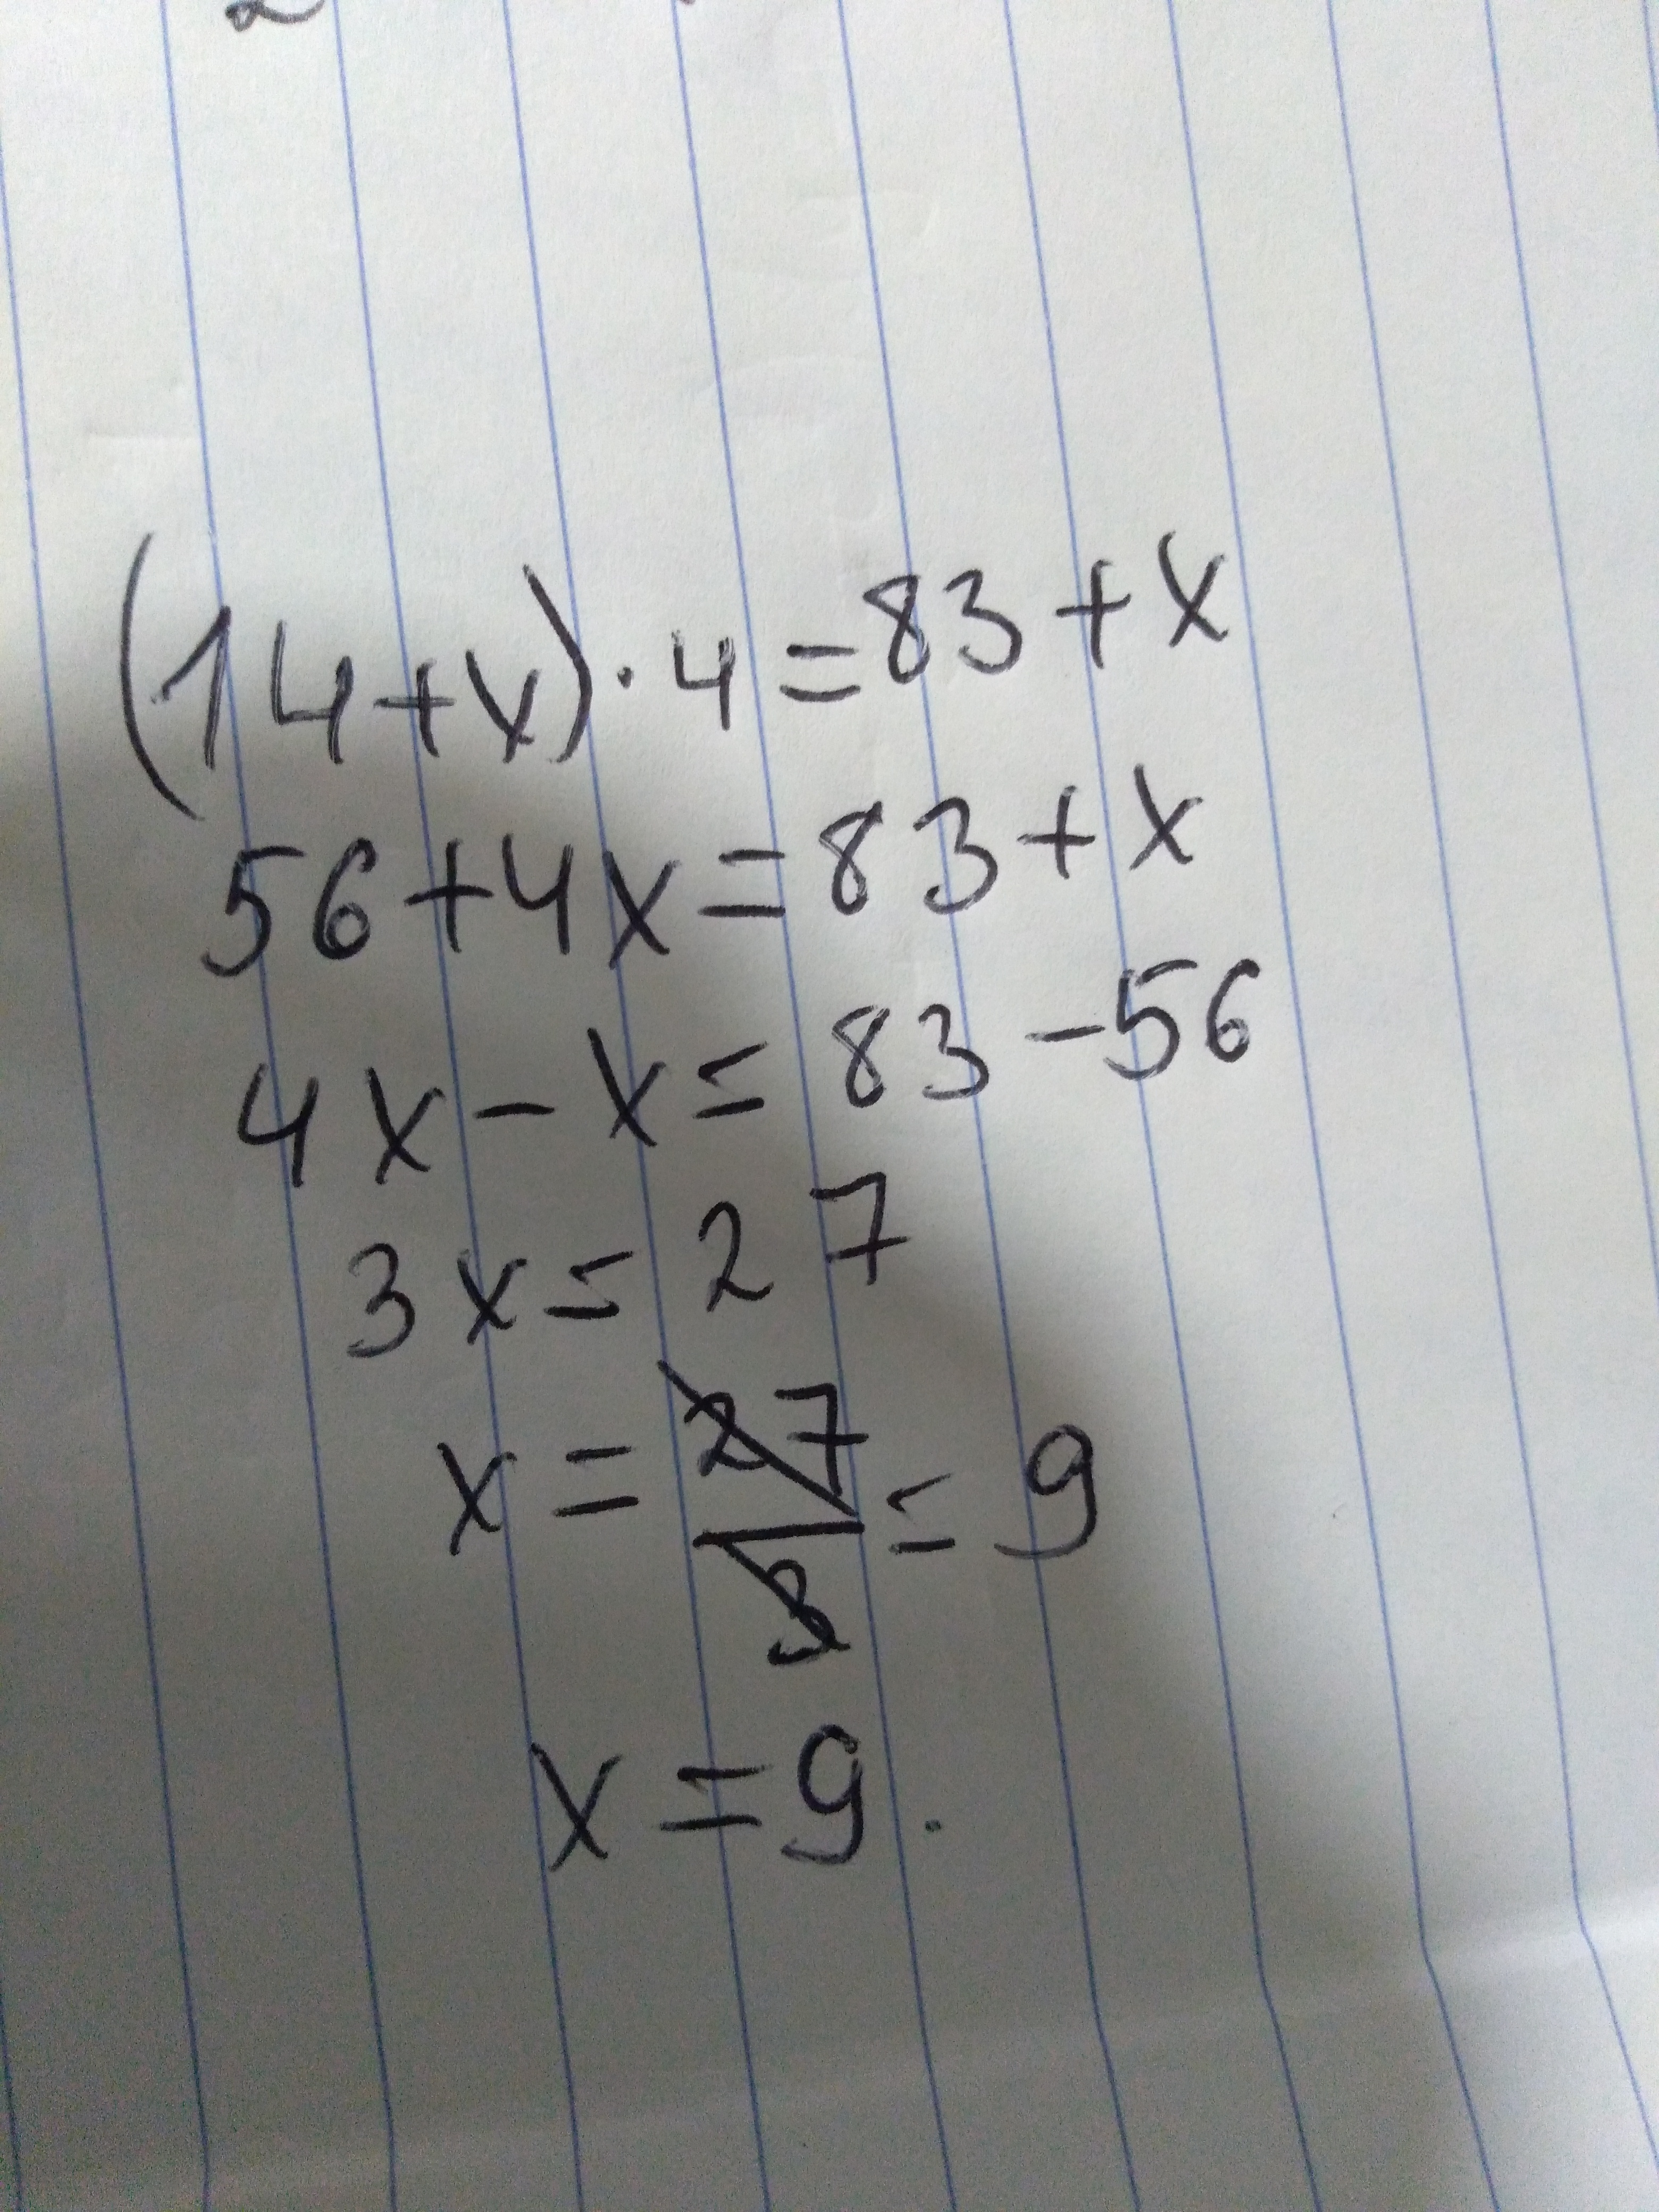 (14+x)·4=83+x
56+4x=83+x
4x-x=83-56
3x=27
x=27/3=9
x=9.